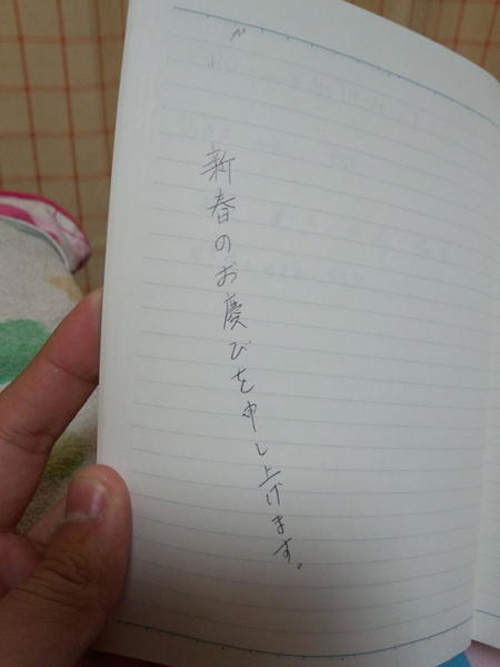 新春のお慶びを申し上げます。